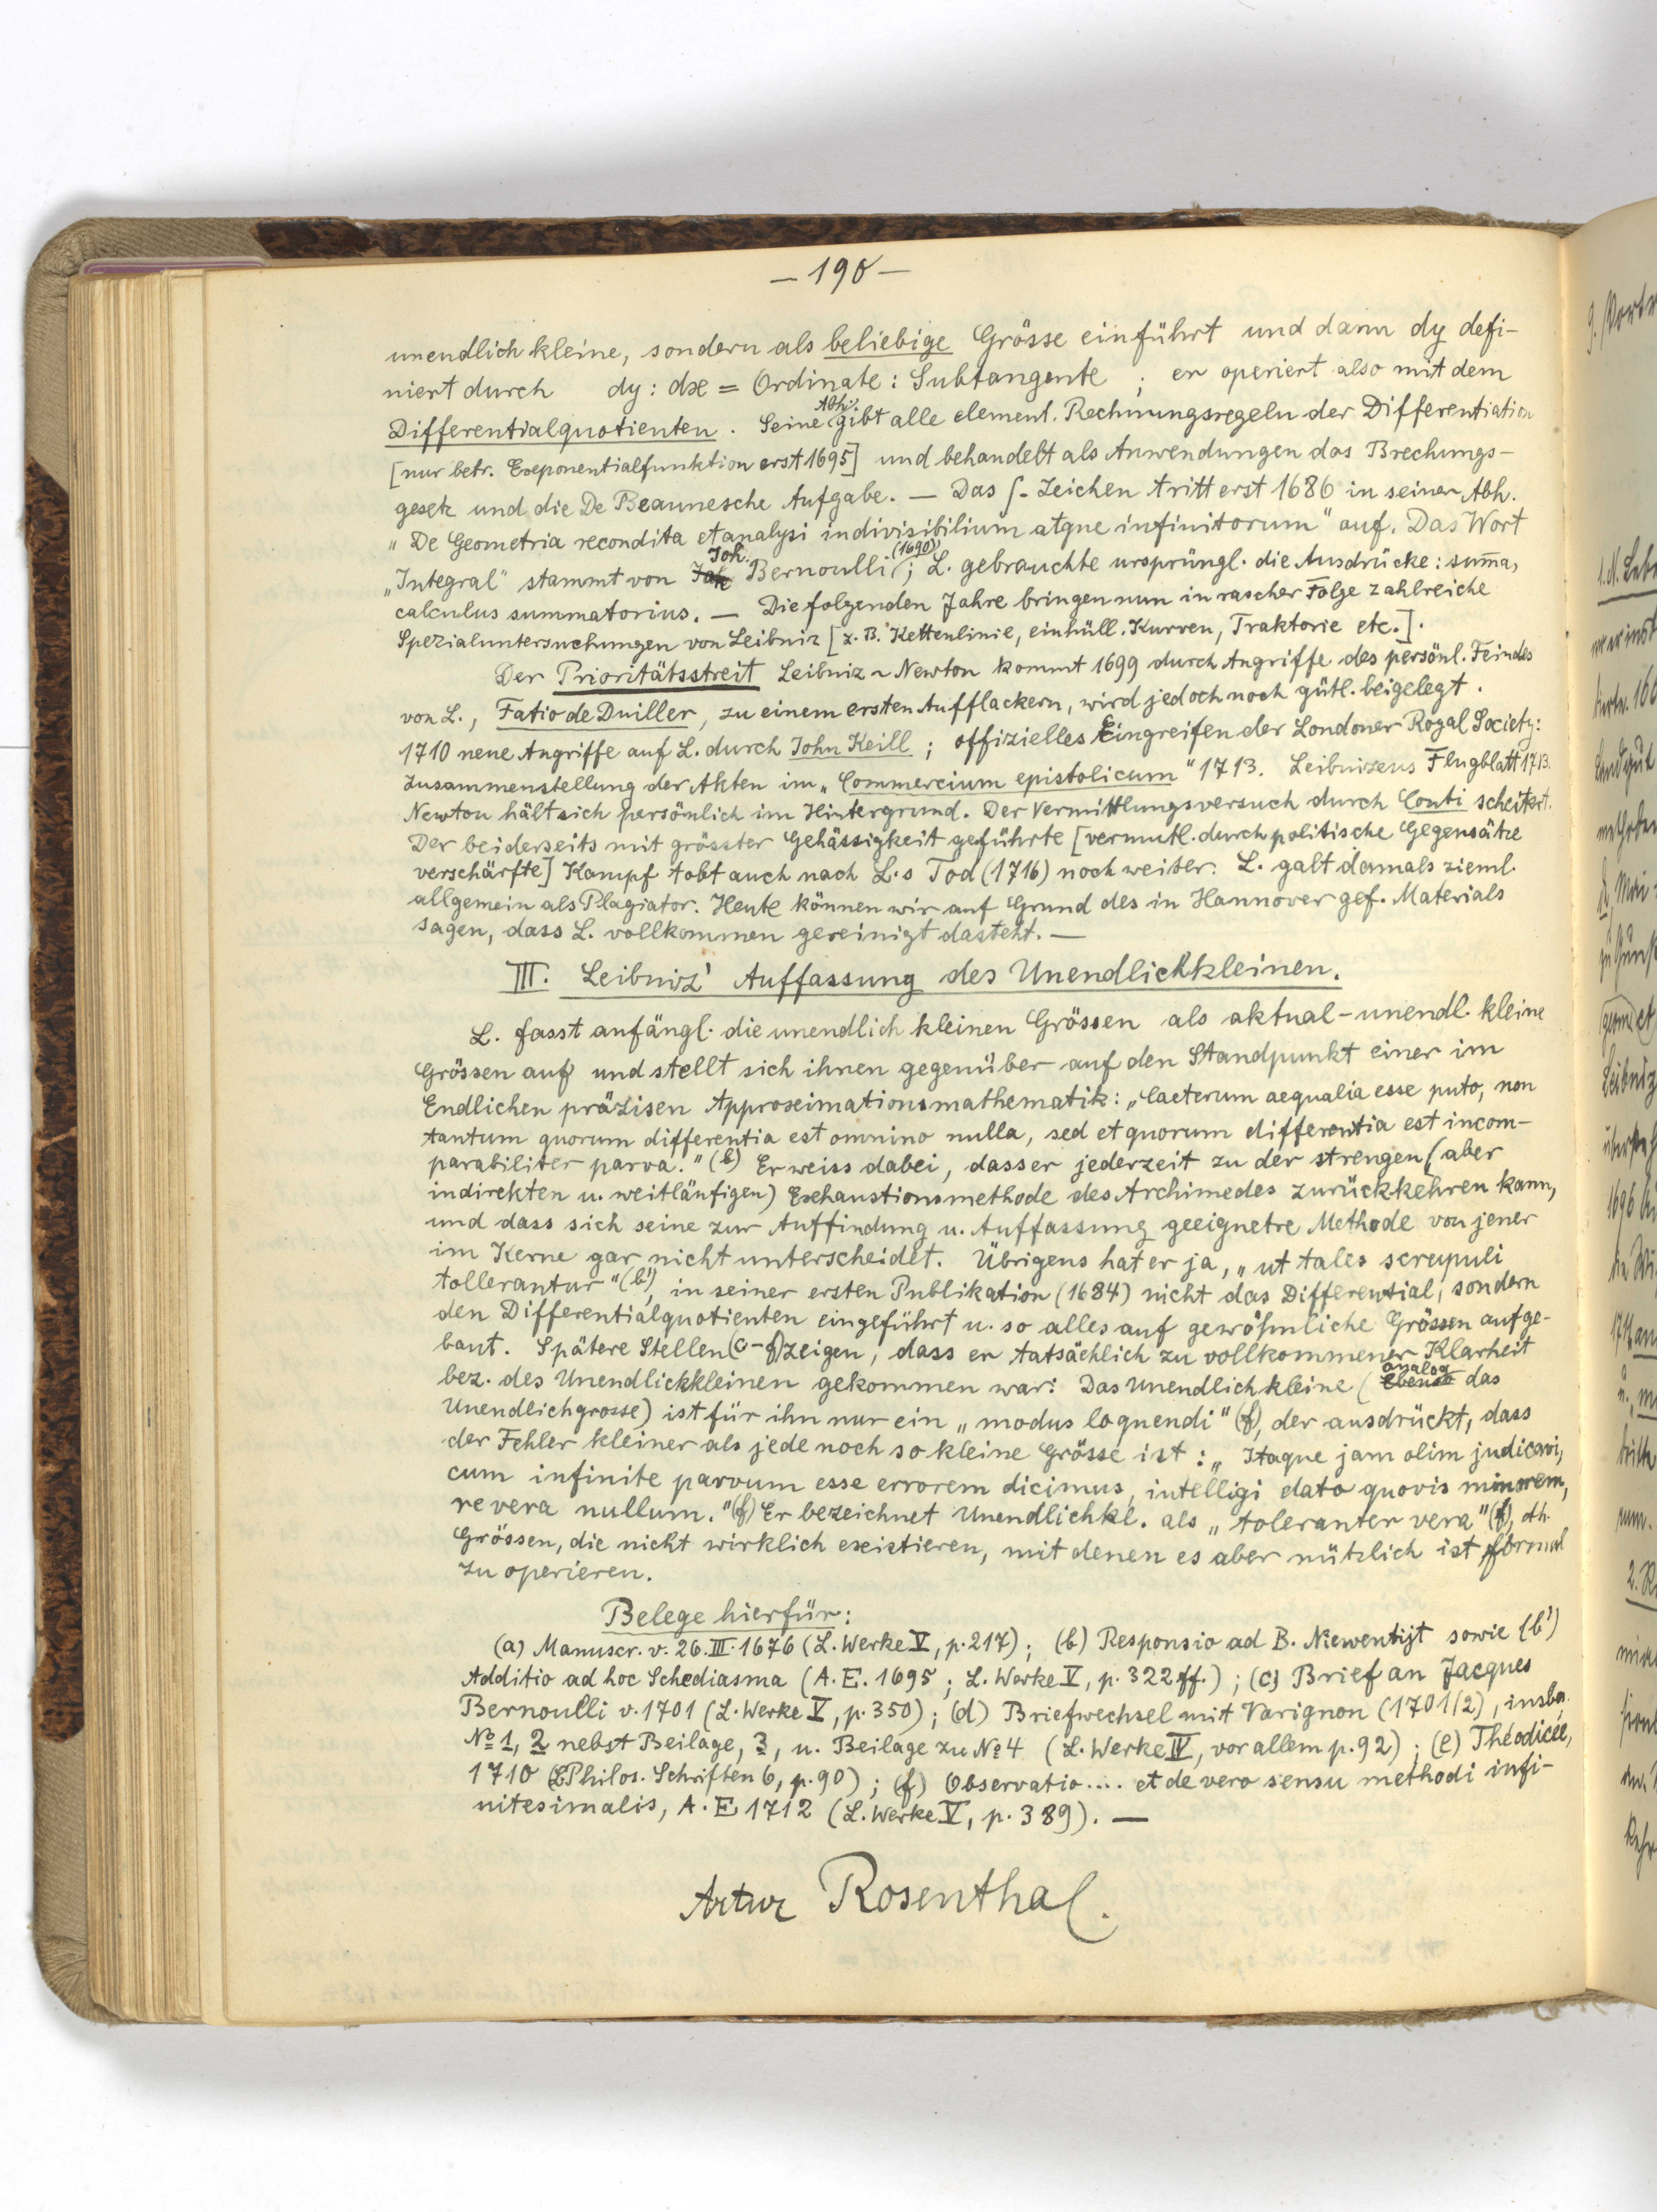 — 190 —
unendlich kleine, sondern als beliebige Grösse einführt und dann dy defi-
niert durch dy : dx = Ordinate : Subtangente ; er operiert also mit dem
Differentialquotienten . Seine Abh. gibt alle element. Rechnungsregeln der Differentiation
[nur betr. Exponentialfunktion erst 1695] und behandelt als Anwendungen das Brechungs-
gesetz und die De Beaunesche Aufgabe. — Das ∫- Zeichen tritt erst 1686 in seiner Abh.
„ De Geometria recondita et analysi indivisibilium atque infinitorum" auf. Das Wort
„Integral" stammt von Joh. Bernoulli (1690); L. gebrauchte ursprüngl. die Ausdrücke : sum̄a,
calculus summatorius. — Die folgenden Jahre bringen nun in rascher Folge zahlreiche
Spezialuntersuchungen von Leibniz [z. B. Kettenlinie, einhüll. Kurven, Traktorie etc.].
Der Prioritätsstreit Leibniz ~ Newton kommt 1699 durch Angriffe des persönl. Feindes
von L., Fatio de Duiller, zu einem ersten Aufflackern, wird jedoch noch gütl. beigelegt .
1710 neue Angriffe auf L. durch John Keill ; offizielles Eingreifen der Londoner Royal Society:
Zusammenstellung der Akten im „Commercium epistolicum" 1713. Leibnizens Flugblatt 1713.
Newton hält sich persönlich im Hintergrund. Der Vermittlungsversuch durch Conti scheitert.
Der beiderseits mit grösster Gehässigkeit geführte [vermutl. durch politische Gegensätze
verschärfte] Kampf tobt auch nach L.s Tod (1716) noch weiter. L. galt damals zieml.
allgemein als Plagiator. Heute können wir auf Grund des in Hannover gef. Materials
sagen, dass L. vollkommen gereinigt dasteht. —
III. Leibniz' Auffassung des Unendlichkleinen.
L. fasst anfängl. die unendlich kleinen Grössen als aktual-unendl. kleine
Grössen auf und stellt sich ihnen gegenüber auf den Standpunkt einer im
Endlichen präzisen Approximationsmathematik : „Caeterum aequalia esse puto, non
tantum quorum differentia est omnino nulla, sed et quorum differentia est incom-
parabiliter parva." (b) Er weiss dabei, dass er jederzeit zu der strengen (aber
indirekten u. weitläufigen) Exhaustionsmethode des Archimedes zurückkehren kann,
und dass sich seine zur Auffindung u. Auffassung geeignetre Methode von jener
im Kerne gar nicht unterscheidet. Übrigens hat er ja, „ut tales scrupuli
tollerantur" (b'), in seiner ersten Publikation (1684) nicht das Differential, sondern
den Differentialquotienten eingeführt u. so alles auf gewöhnliche Grössen aufge-
baut. Spätere Stellen (c-f) zeigen, dass er tatsächlich zu vollkommener Klarheit
bez. des Unendlichkleinen gekommen war : Das Unendlichkleine (analog das
Unendlichgrosse) ist für ihn nur ein „modus loquendi" (f), der ausdrückt, dass
der Fehler kleiner als jede noch so kleine Grösse ist : „Itaque jam olim judicavi,
cum infinite parvum esse errorem dicimus, intelligi dato quovis minorem,
revera nullum." (f) Er bezeichnet Unendlichkl. als „toleranter vera" (f), dh.
Grössen, die nicht wirklich existieren, mit denen es aber nützlich ist formal
zu operieren.
Belege hierfür :
(a) Manuscr. v. 26. III. 1676 (L. Werke V, p. 217) ; (b) Responsio ad B. Niewentijt sowie (b')
Additio ad hoc Schediasma (A. E. 1695 ; L. Werke V, p. 322 ff.) ; (c) Brief an Jacques
Bernoulli v. 1701 (L. Werke V, p. 350) ; (d) Briefwechsel mit Varignon (1701/2), insbe.
No 1, 2 nebst Beilage, 3, u. Beilage zu No 4 (L. Werke IV, vor allem p. 92) ; (e) Théodicée,
1710 (Philos. Schriften 6, p. 90) ; (f) Observatio .... et de vero sensu methodi infi-
nitesimalis, A. E 1712 (L. Werke V, p. 389). —
Artur Rosenthal.